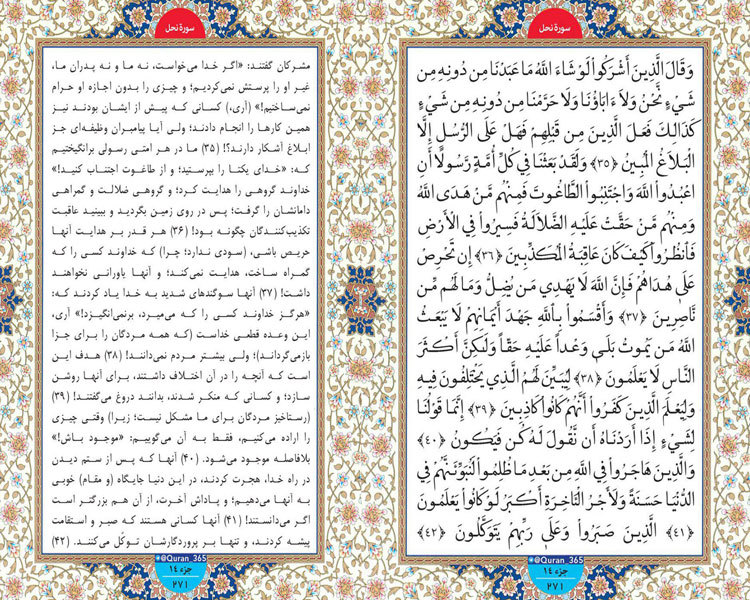 سورۀ نحل
وَقَالَ الَّذِينَ أَشْرَكُواْ لَوْ شَاءَ اللَّهُ مَا عَبَدْنَا مِن دُونِهِ مِن
شَيْءٍ نَّحْنُ وَلَاءَ ابَاؤُنَا وَلَا حَرَّمْنَا مِن دُونِهِ مِن شَيْءٍ
كَذَالِكَ فَعَلَ الَّذِينَ مِن قَبْلِهِمْ فَهَلْ عَلَى الرُّسُلِ إِلَّا
الْبَلَاغُ الْمُبِينُ ﴿۳۵﴾ وَلَقَدْ بَعَثْنَا فِي كُلِّ أُمَّةٍ رَّسُولًا أَنِ
اعْبُدُواْ اللَّهَ وَاجْتَنِبُواْ الطَّاغُوتَ فَمِنْهُم مَّنْ هَدَى اللَّهُ
وَمِنْهُم مَّنْ حَقَّتْ عَلَيْهِ الضَّلَالَةُ فَسِيرُواْ فِي الْأَرْضِ
فَانظُرُواْ كَيْفَ كَانَ عَاقِبَةُ الْمُكَذِّبِينَ ﴿۳۶﴾ إِن تَحْرِصْ
عَلَى هُدَاهُمْ فَإِنَّ اللَّهَ لَا يَهْدِي مَن يُضِلُّ وَمَا لَهُم مِّن
نَّاصِرِينَ ﴿۳۷﴾ وَأَقْسَمُواْ بِاللَّهِ جَهْدَ أَيْمَانِهِمْ لَا يَبْعَثُ
اللَّهُ مَن يَمُوتُ بَلَى وَعْداً عَلَيْهِ حَقّاً وَلَكِنَّ أَكْثَرَ
النَّاسِ لَا يَعْلَمُونَ ﴿۳۸﴾ لِيُبَيِّنَ لَهُمُ الَّذِي يَخْتَلِفُونَ فِيهِ
وَلِيَعْلَمَ الَّذِينَ كَفَرُواْ أَنَّهُمْ كَانُواْ كَاذِبِينَ ﴿۳۹﴾ إِنَّمَا قَوْلُنَا
لِشَيْءٍ إِذَا أَرَدْنَاهُ أَن نَّقُولَ لَهُ كُن فَيَكُونُ ﴿۴۰﴾
وَالَّذِينَ هَاجَرُواْ فِي اللَّهِ مِن بَعْدِ مَا ظُلِمُواْ لَنُبَوِّئَنَّهُمْ فِي
الدُّنْيَا حَسَنَةً وَلَأَجْرُ الْآخِرَةِ أَكْبَرُ لَوْ كَانُواْ يَعْلَمُونَ
﴿۴۱﴾ الَّذِينَ صَبَرُواْ وَعَلَى رَبِّهِمْ يَتَوَكَّلُونَ ﴿۴۲﴾
@Quran_365
جزء ۱۴
۲۷۱
سورۀ نحل
مشرکان گفتند: «اگر خدا می‌خواست، نه ما و نه پدران ما،
غیر او را پرستش نمی‌کردیم؛ و چیزی را بدون اجازه او حرام
نمی‌ساختیم!» (آری،) کسانی که پیش از ایشان بودند نیز
همین کارها را انجام دادند؛ ولی آیا پیامبران وظیفه‌ای جز
ابلاغ آشکار دارند؟! (۳۵) ما در هر امتی رسولی برانگیختیم
که: «خدای یکتا را بپرستید؛ و از طاغوت اجتناب کنید!»
خداوند گروهی را هدایت کرد؛ و گروهی ضلالت و گمراهی
دامانشان را گرفت؛ پس در روی زمین بگردید و ببینید عاقبت
تکذیب‌کنندگان چگونه بود! (۳۶) هر قدر بر هدایت آنها
حریص باشی، (سودی ندارد؛ چرا) که خداوند کسی را که
گمراه ساخت، هدایت نمی‌کند؛ و آنها یاورانی نخواهند
داشت! (۳۷) آنها سوگندهای شدید به خدا یاد کردند که:
«هرگز خداوند کسی را که می‌میرد، برنمی‌انگیزد!» آری،
این وعده قطعی خداست (که همه مردگان را برای جزا
بازمی‌گرداند)؛ ولی بیشتر مردم نمی‌دانند! (۳۸) هدف این
است که آنچه را در آن اختلاف داشتند، برای آنها روشن
سازد؛ و کسانی که منکر شدند، بدانند دروغ می‌گفتند! (۳۹)
(رستاخیز مردگان برای ما مشکل نیست؛ زیرا) وقتی چیزی
را اراده می‌کنیم، فقط به آن می‌گوییم: «موجود باش!»
بلافاصله موجود می‌شود. (۴۰) آنها که پس از ستم دیدن
در راه خدا، هجرت کردند، در این دنیا جایگاه (و مقام) خوبی
به آنها می‌دهیم؛ و پاداش آخرت، از آن هم بزرگتر است
اگر می‌دانستند! (۴۱) آنها کسانی هستند که صبر و استقامت
پیشه کردند، و تنها بر پروردگارشان توکّل می‌کنند. (۴۲)
@Quran_365
جزء ۱۴
۲۷۱